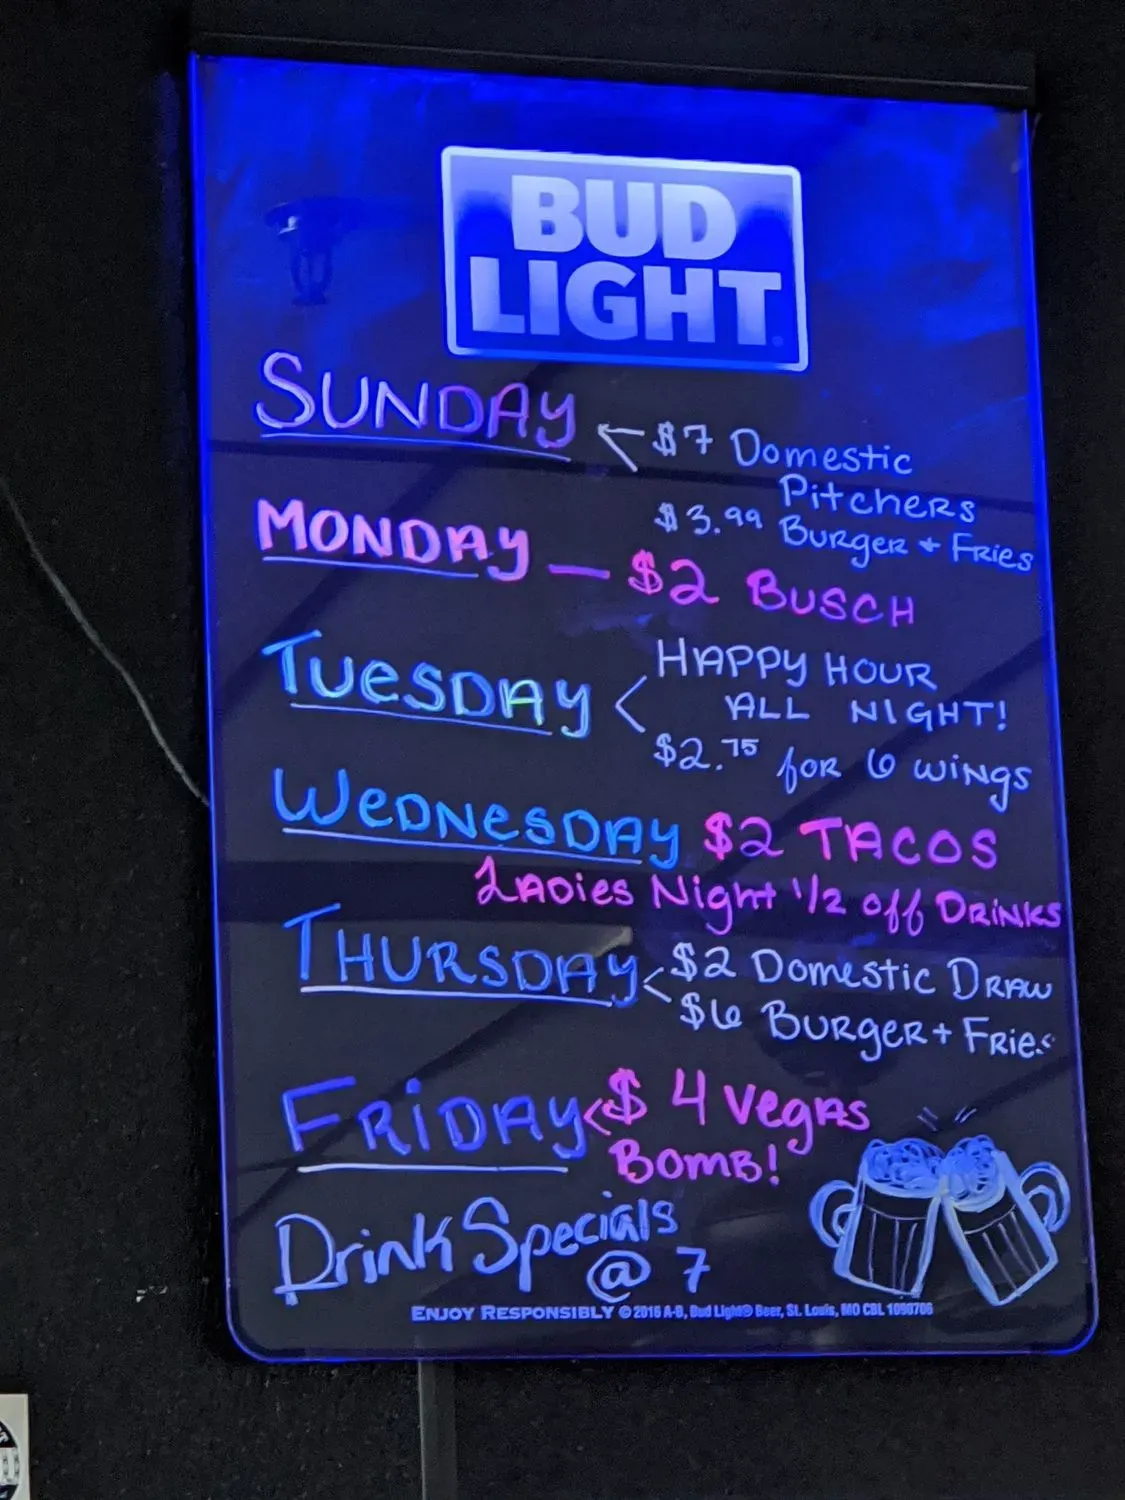 BUD
LIGHT
SUNDAY
$7 Domestic
Pitchers
$3.99 Burger + Fries
MONDAY — $2 BUSCH
TUESDAY
HAPPY HOUR
ALL NIGHT!
$2.75 for 6 wings
WEDNESDAY $2 TACOS
Ladies Night 1/2 off Drinks
THURSDAY
$2 Domestic Draw
$6 Burger + Fries
FRIDAY $4 Vegas
Bomb!
Drink Specials
@ 7
ENJOY RESPONSIBLY © 2016 A-B, Bud Light® Beer, St. Louis, MO CBL 1090706